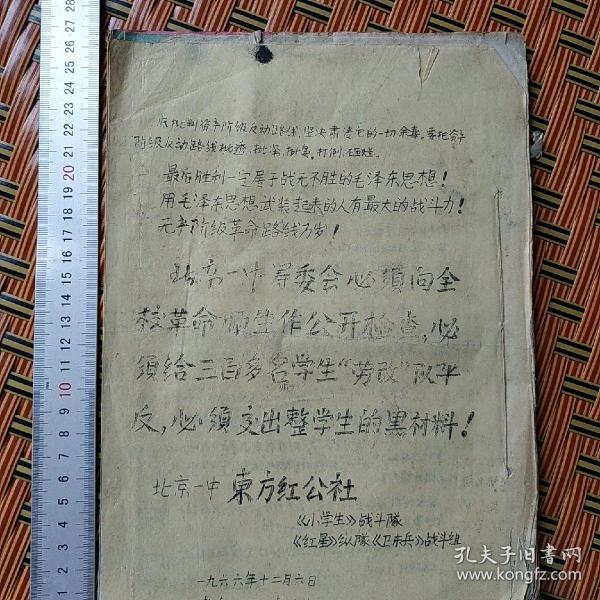 底批判资产阶级反动路线,坚决肃清它的一切余毒。要把资产
阶级反动路线批透、批深、批臭。打倒、砸烂。
最后胜利一定属于战无不胜的毛泽东思想!
用毛泽东思想武装起来的人有最大的战斗力!
无产阶级革命路线万岁!
北京一中筹委会必须向全
校革命师生作公开检查,必
须给三百多名学生“劳改”队平
反,必须交出整学生的黑材料!
北京一中 東方红公社
《小学生》战斗隊
《红星》纵隊《卫东兵》战斗组
一九六六年十二月六日
孔夫子旧書网
www.kongfz.com
0 1 2 3 4 5 6 7 8 9 10 11 12 13 14 15 16 17 18 19 20 21 22 23 24 25 26 27 28